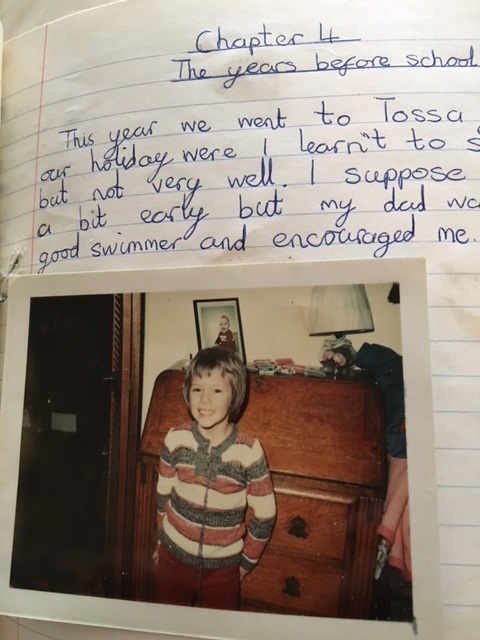 Chapter 4
The years before school
This year we went to Tossa
our holiday were I learn't to s
but not very well. I suppose
a bit early but my dad wa
good swimmer and encouraged me.